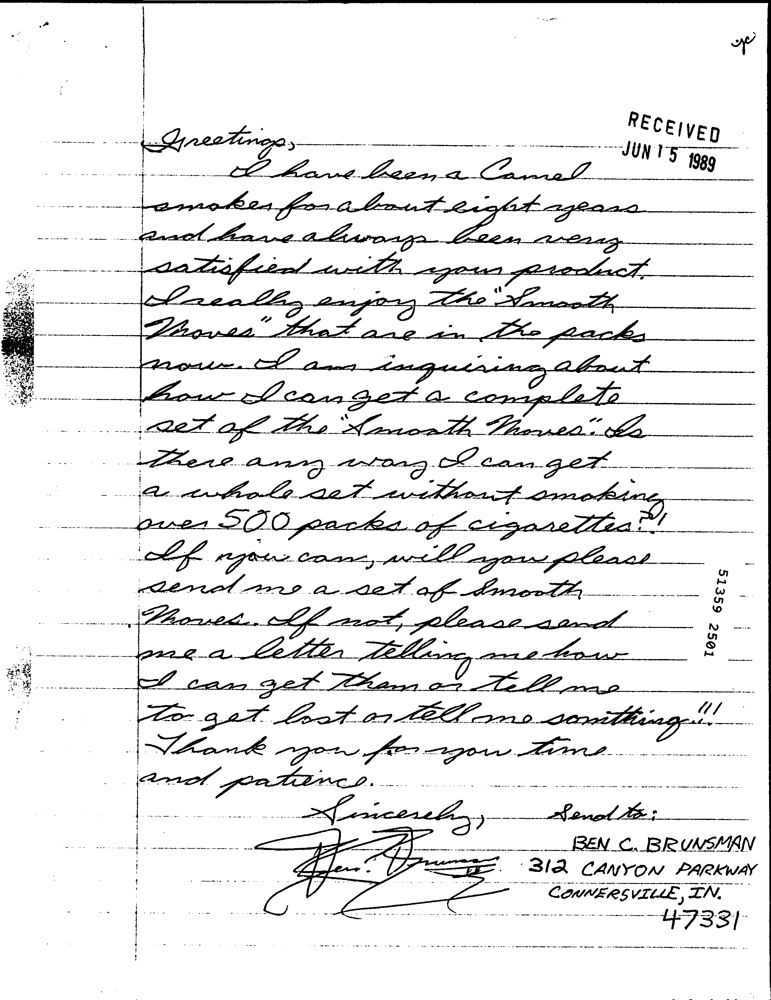 RECEIVED
JUN 15 1989
Greetings,
I have been a Camel
smoker for about eight years
and have always been very
satisfied with your product.
I really enjoy the "Smooth
Moves" that are in the packs
now. I am inquiring about
how I can get a complete
set of the "Smooth Moves". Is
there any way I can get
a whole set without smoking
over 500 packs of cigarettes?!
If you can, will you please
send me a set of Smooth
Moves. If not, please send
me a letter telling me how
I can get them or tell me
to get lost or tell me somthing!!!
Thank you for you time
and patience.
Sincerely,
Send to:
BEN C. BRUNSMAN
312 CANYON PARKWAY
CONNERSVILLE, IN.
47331
51359 2501